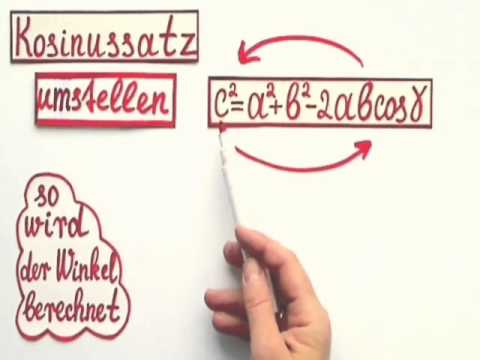 Kosinussatz
umstellen
c²=a²+b²-2abcosγ
so
wird
der Winkel
berechnet